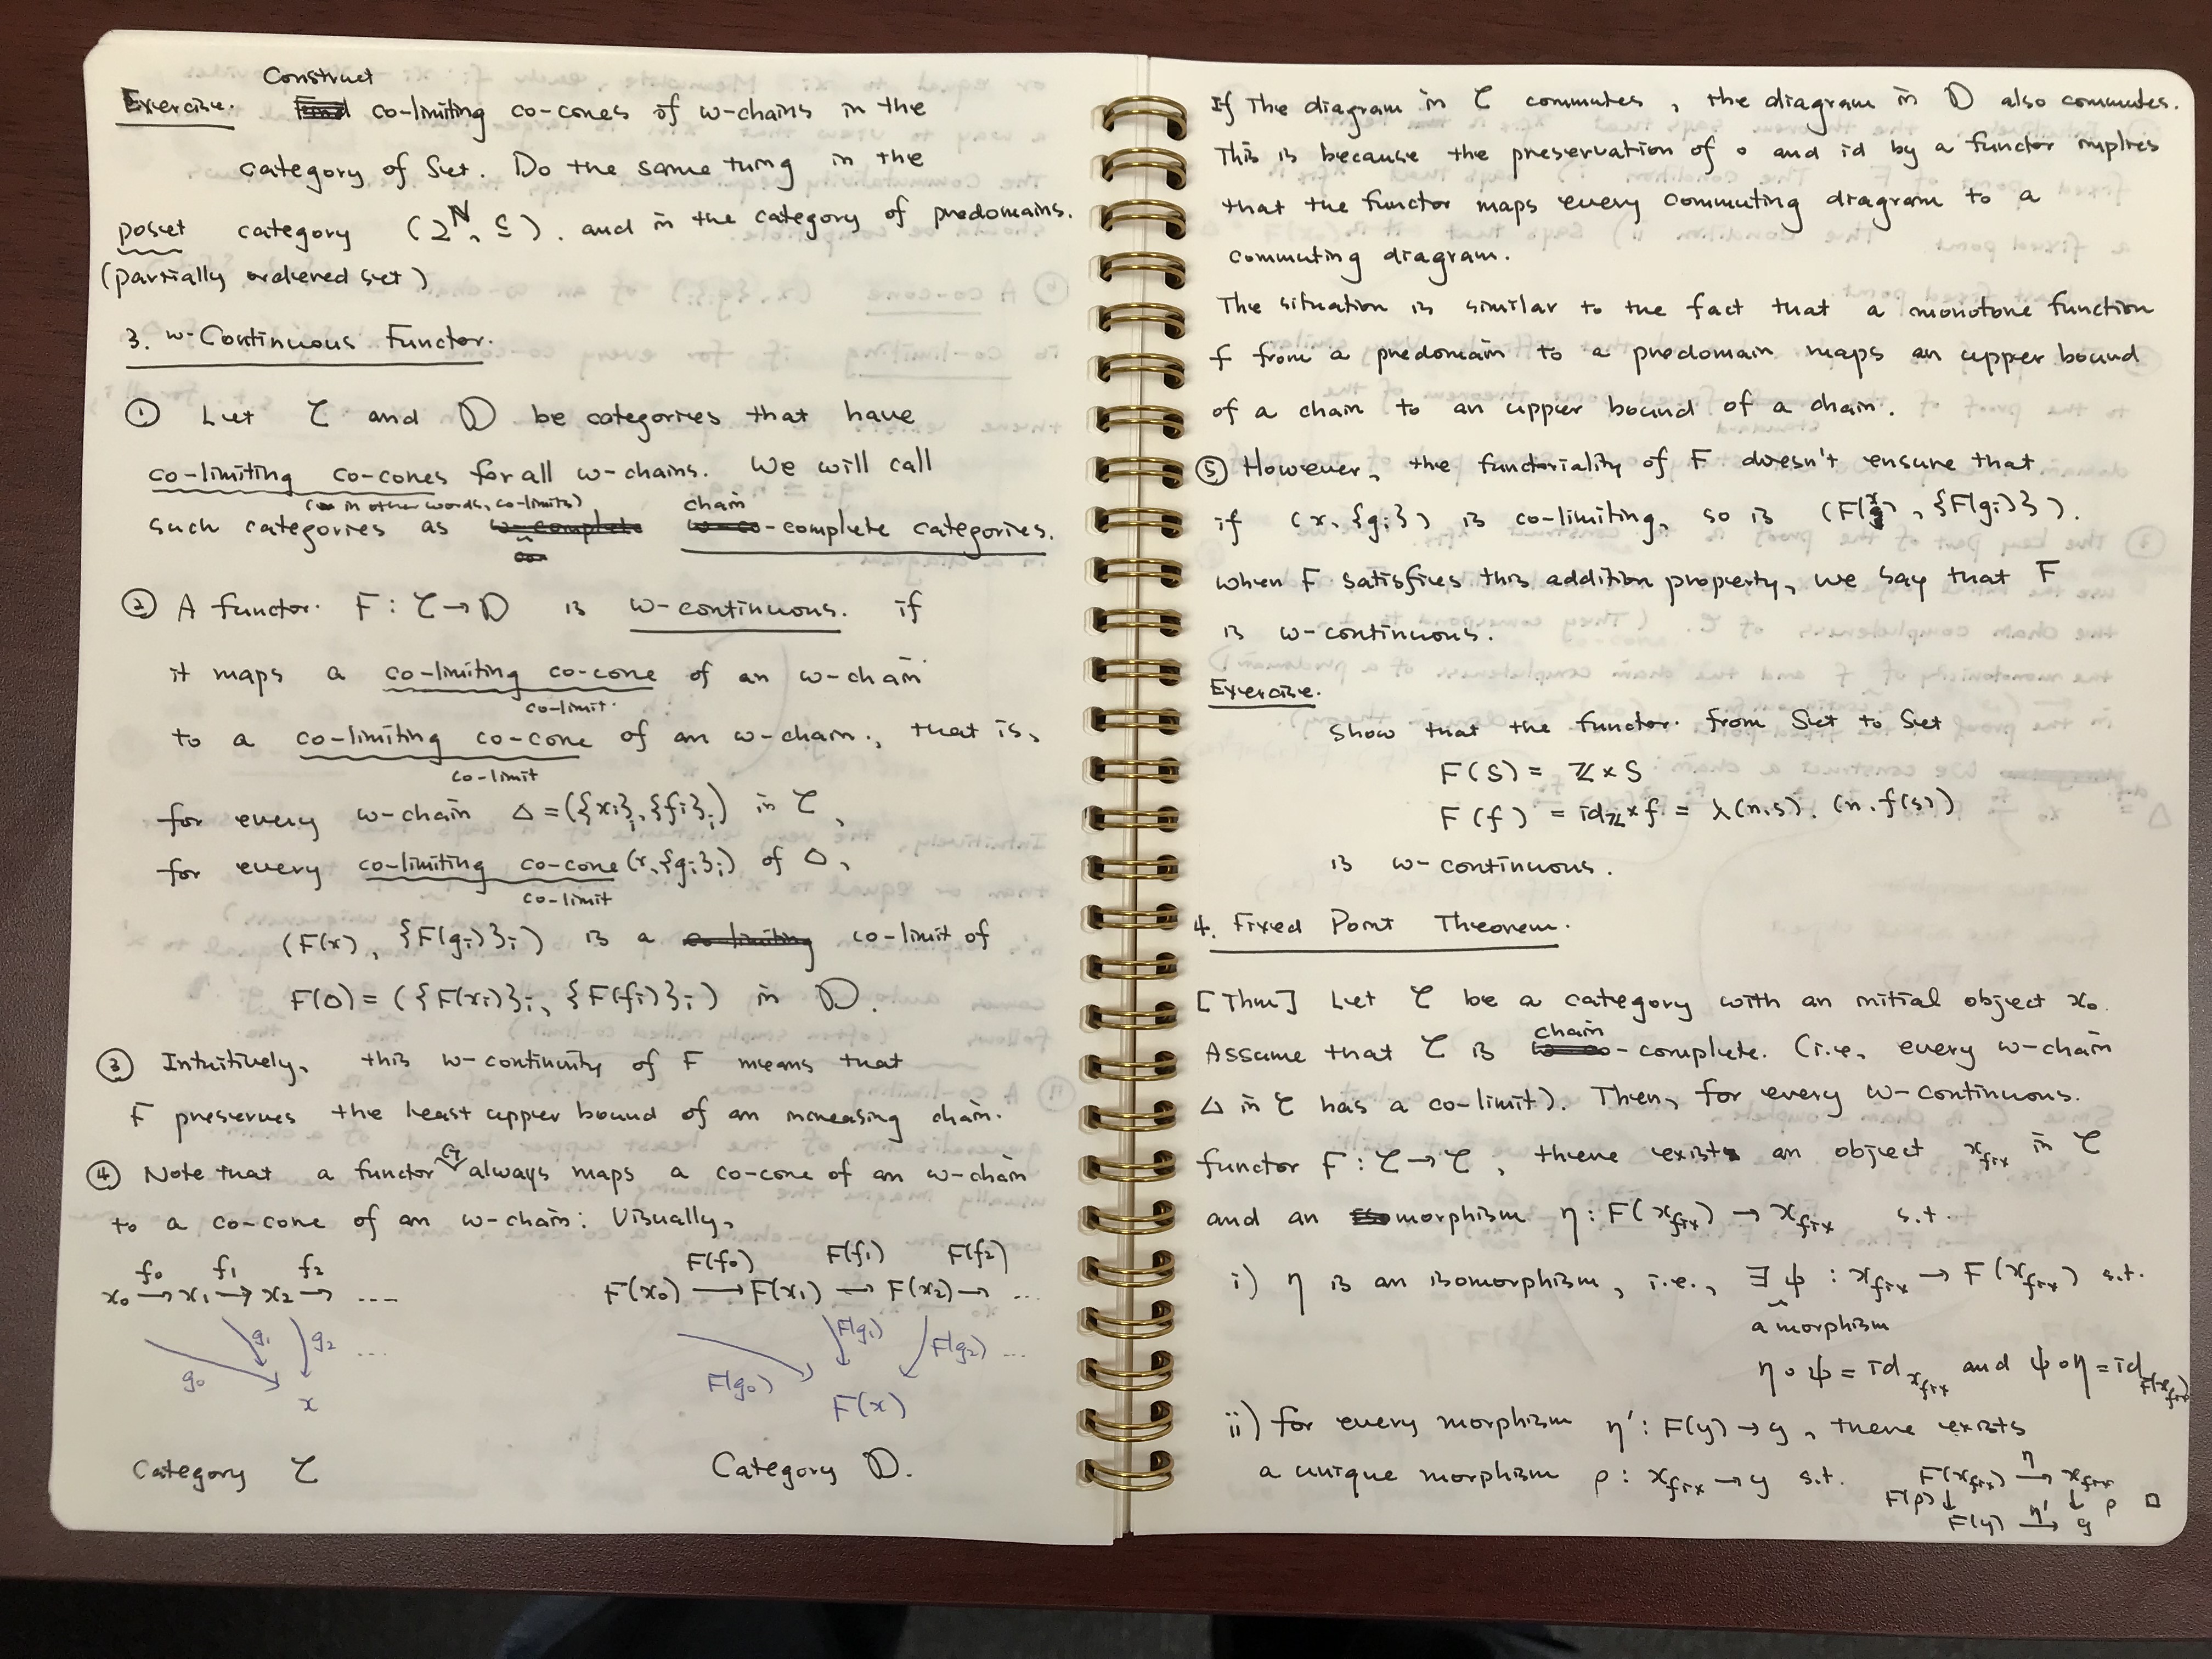 Construct
Exercise. co-limiting co-cones of ω-chains in the
category of Set. Do the same thing in the
poset category (2^ℕ, ⊆). and in the category of predomains.
(partially ordered set)
3. ω-Continuous Functor.
① Let 𝒞 and 𝔻 be categories that have
co-limiting co-cones for all ω-chains. We will call
(in other words, co-limits) chain
such categories as ω-complete ω-co-complete categories.
② A functor. F : 𝒞 → 𝔻 is ω-continuous. if
it maps a co-limiting co-cone of an ω-chain
co-limit.
to a co-limiting co-cone of an ω-chain., that is,
co-limit
for every ω-chain Δ = ({xi}i, {fi}i) in 𝒞,
for every co-limiting co-cone (x, {gi}i) of Δ,
co-limit
(F(x), {F(gi)}i) is a co-limiting co-limit of
F(Δ) = ({F(xi)}i, {F(fi)}i) in 𝔻.
③ Intuitively, this ω-continuity of F means that
F preserves the least upper bound of an increasing chain.
④ Note that a functor G always maps a co-cone of an ω-chain
to a co-cone of an ω-chain: Visually,
f0 f1 f2
x0 → x1 → x2 → ....
g0 g1 g2 ...
x
Category 𝒞
F(f0) F(f1) F(f2)
F(x0) → F(x1) → F(x2) → ...
F(g0) F(g1) F(g2) ...
F(x)
Category 𝔻.
If The diagram in 𝒞 commutes, the diagram in 𝔻 also commutes.
This is because the preservation of ∘ and id by a functor implies
that the functor maps every commuting diagram to a
commuting diagram.
The situation is similar to the fact that a monotone function
f from a predomain to a predomain maps an upper bound
of a chain to an upper bound of a chain.
⑤ However, the functoriality of F doesn't ensure that
if (x, {gi}) is co-limiting, so is (F(x), {F(gi)}).
when F satisfies this addition property, we say that F
is ω-continuous.
Exercise.
Show that the functor. from Set to Set
F(S) = ℤ × S
F(f) = idℤ × f = λ(n,s). (n, f(s))
is ω-continuous.
4. Fixed Point Theorem.
[Thm] Let 𝒞 be a category with an initial object x0.
chain
Assume that 𝒞 is ω-co-complete. (i.e, every ω-chain
Δ in 𝒞 has a co-limit). Then, for every ω-continuous.
functor F : 𝒞 → 𝒞, there exists an object xfix in 𝒞
and an morphism η : F(xfix) → xfix s.t.
i) η is an isomorphism, i.e., ∃ψ : xfix → F(xfix) s.t.
a morphism
η ∘ ψ = id xfix and ψ ∘ η = id F(xfix)
ii) for every morphism η' : F(y) → y, there exists
a unique morphism ρ : xfix → y s.t. F(xfix) →η xfix
F(ρ) ↓ ↓ ρ □
F(y) →η' y